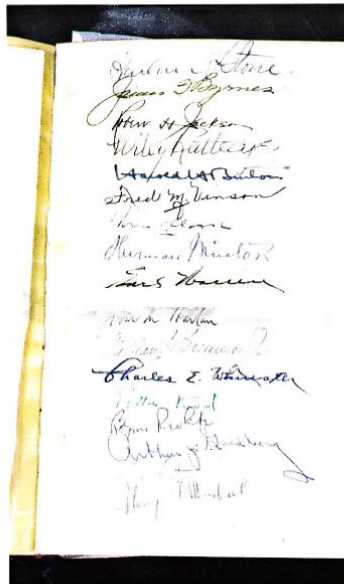 Harlan F. Stone.
James F Byrnes
Robert H Jackson
Wiley Rutledge.
Harold H Burton
Fred M. Vinson
Sherman Minton
Earl Warren
John M Harlan
William J Brennan Jr
Charles E. Whittaker
Potter Stewart
Byron R White
Arthur J Goldberg